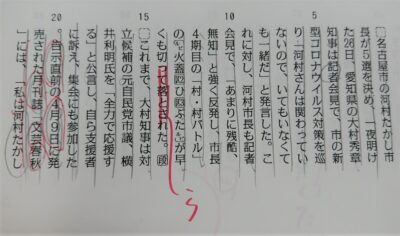 □名古屋市の河村たかし市
長が5選を決め、一夜明け
た26日、愛知県の大村秀章
知事は記者会見で、市の新
5
型コロナウイルス対策を巡
り「河村さんは関わってい
ないので、いてもいなくて
も一緒だ」と発言した。こ
れに対し、河村市長も記者
10
会見で、「あまりに残酷、
無知」と強く反発し、市長
4期目の「村・村バトル」
の火蓋ひぶたが早
くも切って落とされた。
ら
15
□これまで、大村知事は対
立候補の元自民党市議、横
井利明氏を「全力で応援す
る」と公言し、自ら支援者
に訴え、集会にも参加した
20
。告示直前の4月9日に発
売された月刊誌「文芸春秋
」には、「私は河村たかし